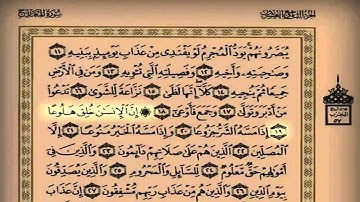 سورة المعارج
الجزء التاسع والعشرون
يُبَصَّرُونَهُمْ يَوَدُّ الْمُجْرِمُ لَوْ يَفْتَدِي مِنْ عَذَابِ يَوْمِئِذٍ بِبَنِيهِ ١١
وَصَاحِبَتِهِ وَأَخِيهِ ١٢ وَفَصِيلَتِهِ الَّتِي تُؤْوِيهِ ١٣ وَمَنْ فِي الْأَرْضِ
جَمِيعًا ثُمَّ يُنْجِيهِ ١٤ كَلَّا إِنَّهَا لَظَى ١٥ نَزَّاعَةً لِلشَّوَى ١٦ تَدْعُوا
مَنْ أَدْبَرَ وَتَوَلَّى ١٧ وَجَمَعَ فَأَوْعَى ١٨ إِنَّ الْإِنْسَانَ خُلِقَ هَلُوعًا
١٩ إِذَا مَسَّهُ الشَّرُّ جَزُوعًا ٢٠ وَإِذَا مَسَّهُ الْخَيْرُ مَنُوعًا ٢١ إِلَّا
الْمُصَلِّينَ ٢٢ الَّذِينَ هُمْ عَلَى صَلَاتِهِمْ دَائِمُونَ ٢٣ وَالَّذِينَ فِي
أَمْوَالِهِمْ حَقٌّ مَعْلُومٌ ٢٤ لِلسَّائِلِ وَالْمَحْرُومِ ٢٥ وَالَّذِينَ يُصَدِّقُونَ
بِيَوْمِ الدِّينِ ٢٦ وَالَّذِينَ هُمْ مِنْ عَذَابِ رَبِّهِمْ مُشْفِقُونَ ٢٧ إِنَّ عَذَابَ